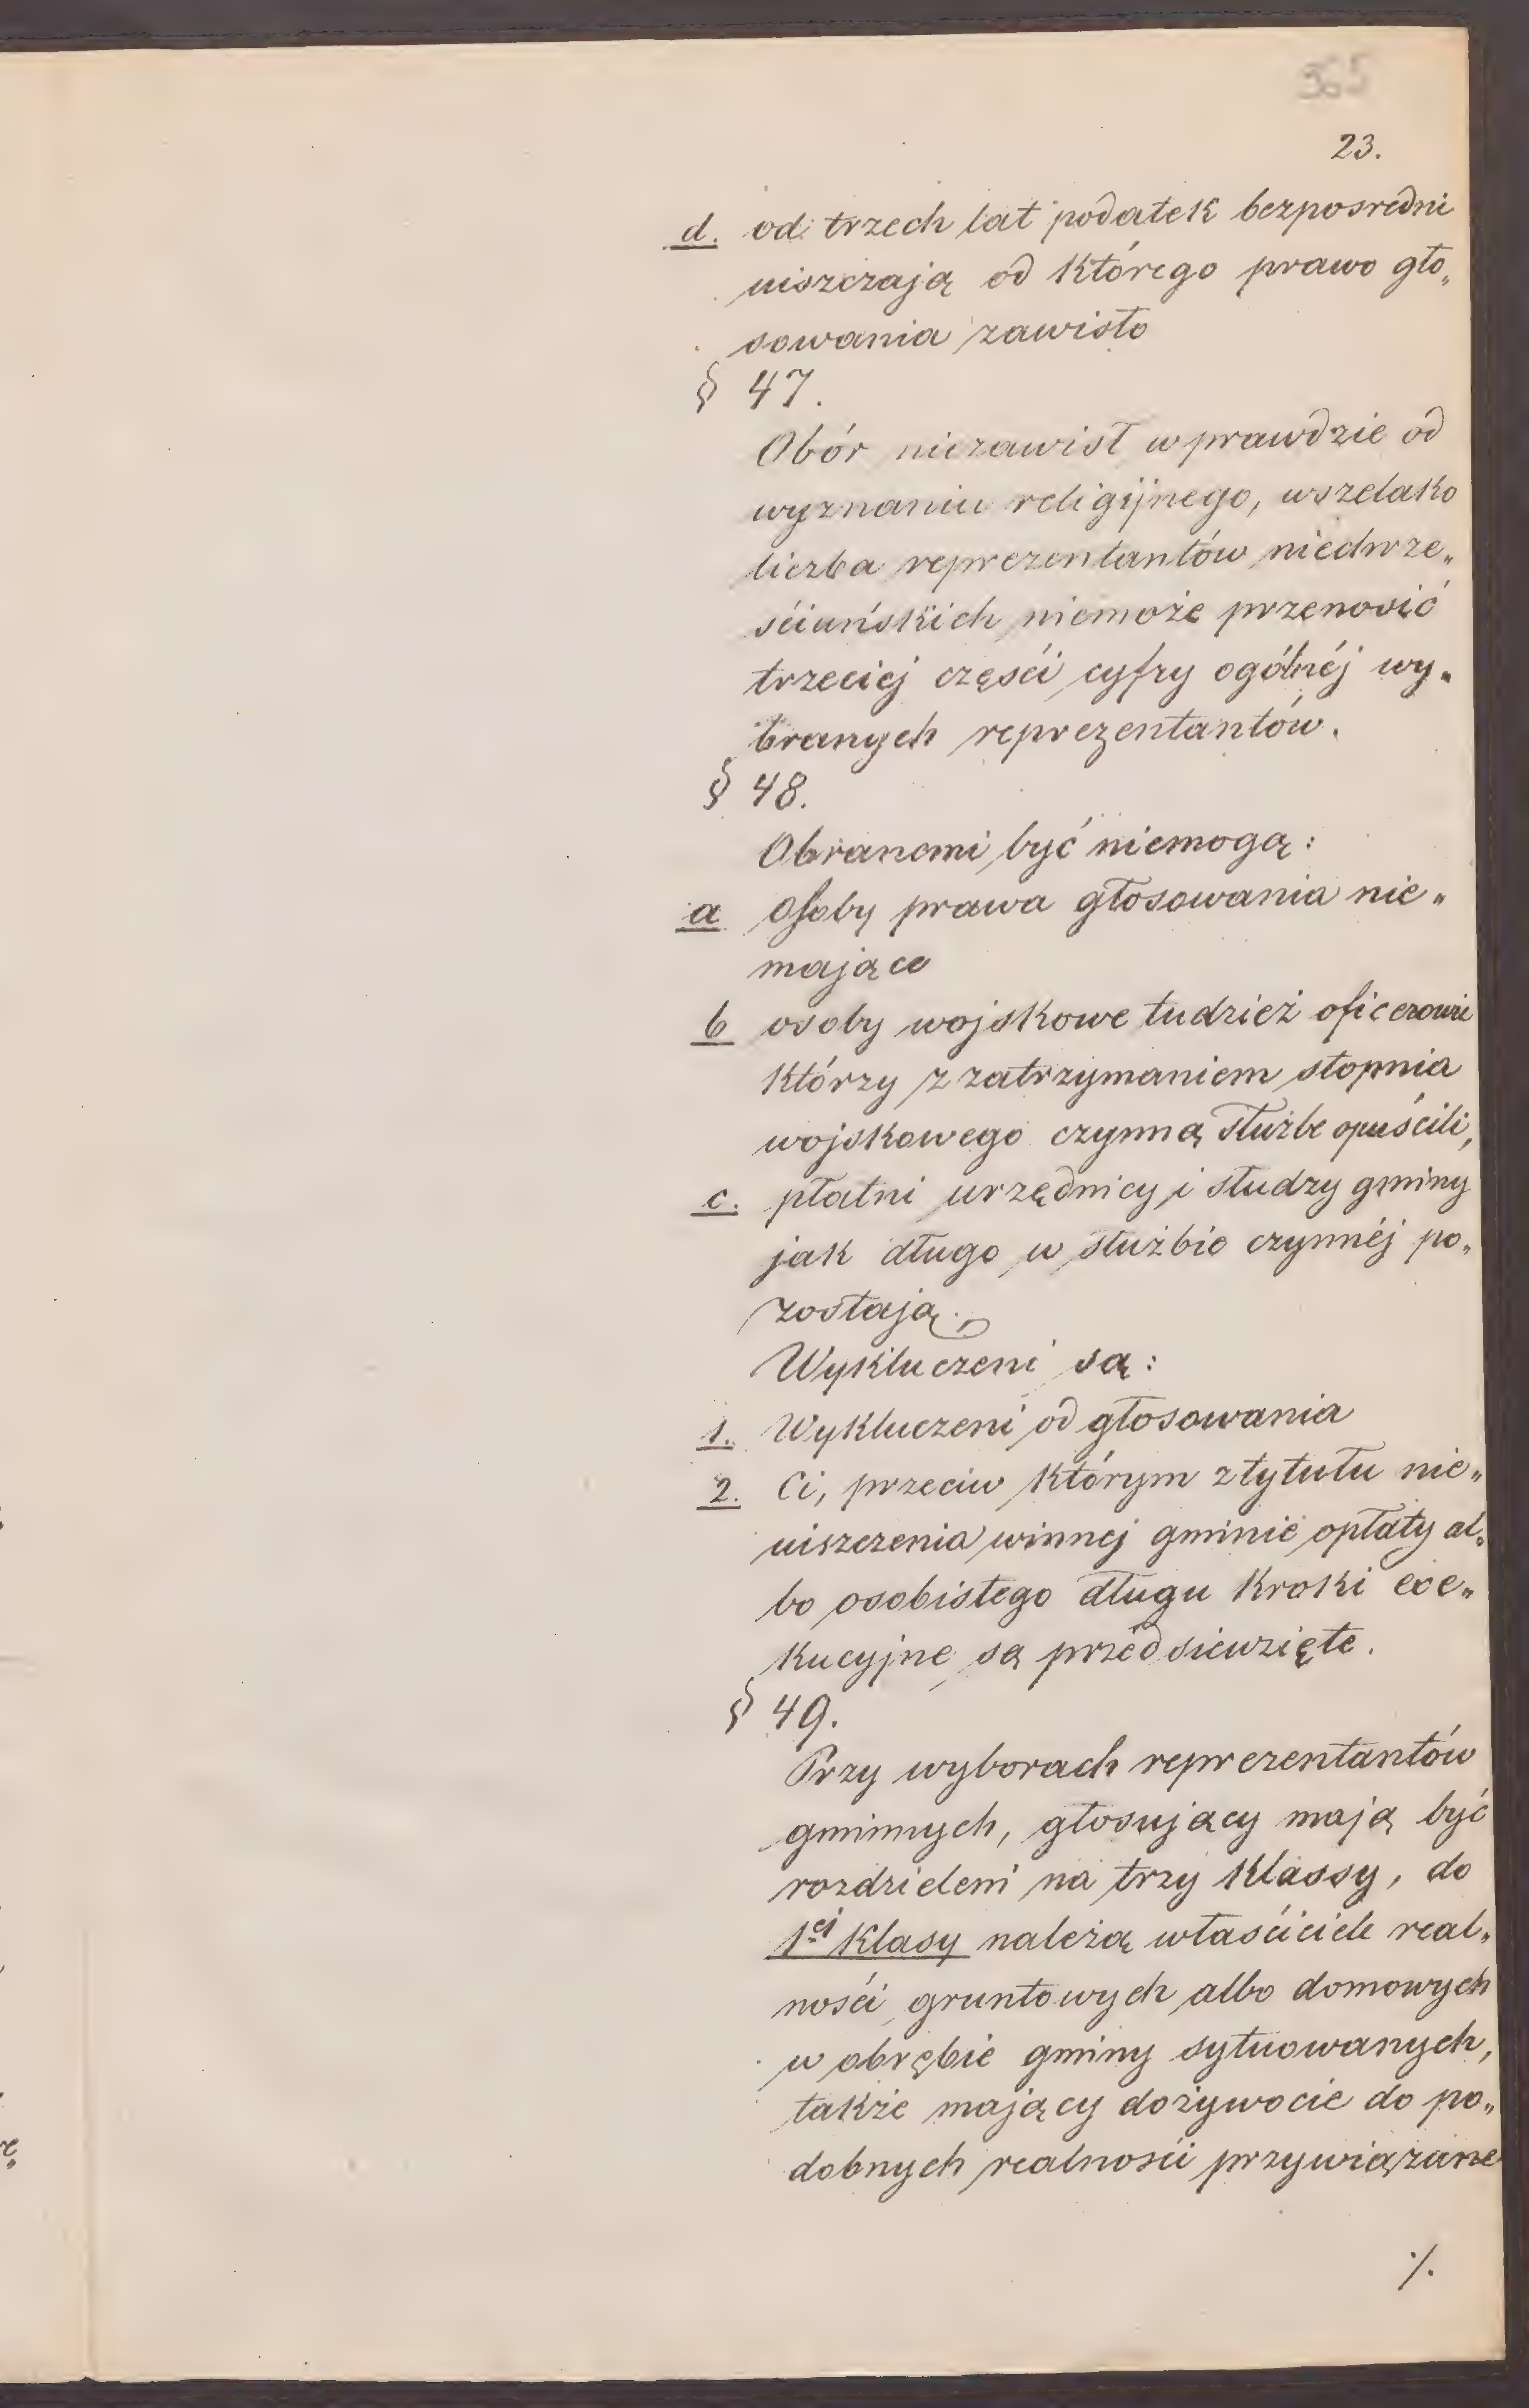 365
23.
d. od trzech lat podatek bezposredni
uiszczają od którego prawo gło„
sowania zawisło
§ 47.
Obór niezawisł wprawdzie od
wyznaniu religijnego, wszelako
liczba reprezentantów niechrze„
ściańskich niemoże przenosić
trzeciej części cyfry ogólnéj wy„
branych reprezentantów.
§ 48.
Obranemi być niemogą:
a osoby prawa głosowania nie„
mające
b osoby wojskowe tudzież oficerowie
którzy z zatrzymaniem stopnia
wojskowego czynną służbe opuścili,
c. płatni urzędnicy i słudzy gminy
jak długo w służbie czynnéj po„
zostają.
Wykluczeni są:
1. Wykluczeni od głosowania
2. Ci, przeciw którym z tytułu nie„
uiszczenia winnej gminie opłaty al„
bo osobistego długu kroki exe„
kucyjne są przedsiewzięte.
§ 49.
Przy wyborach reprezentantów
gminnych, głosujący mają być
rozdzieleni na trzy klassy, do
1ej klasy należą właściciele real„
ności gruntowych albo domowych
w obrębie gminy sytuowanych,
także mający dożywocie do po„
dobnych realności przywiązane
./.